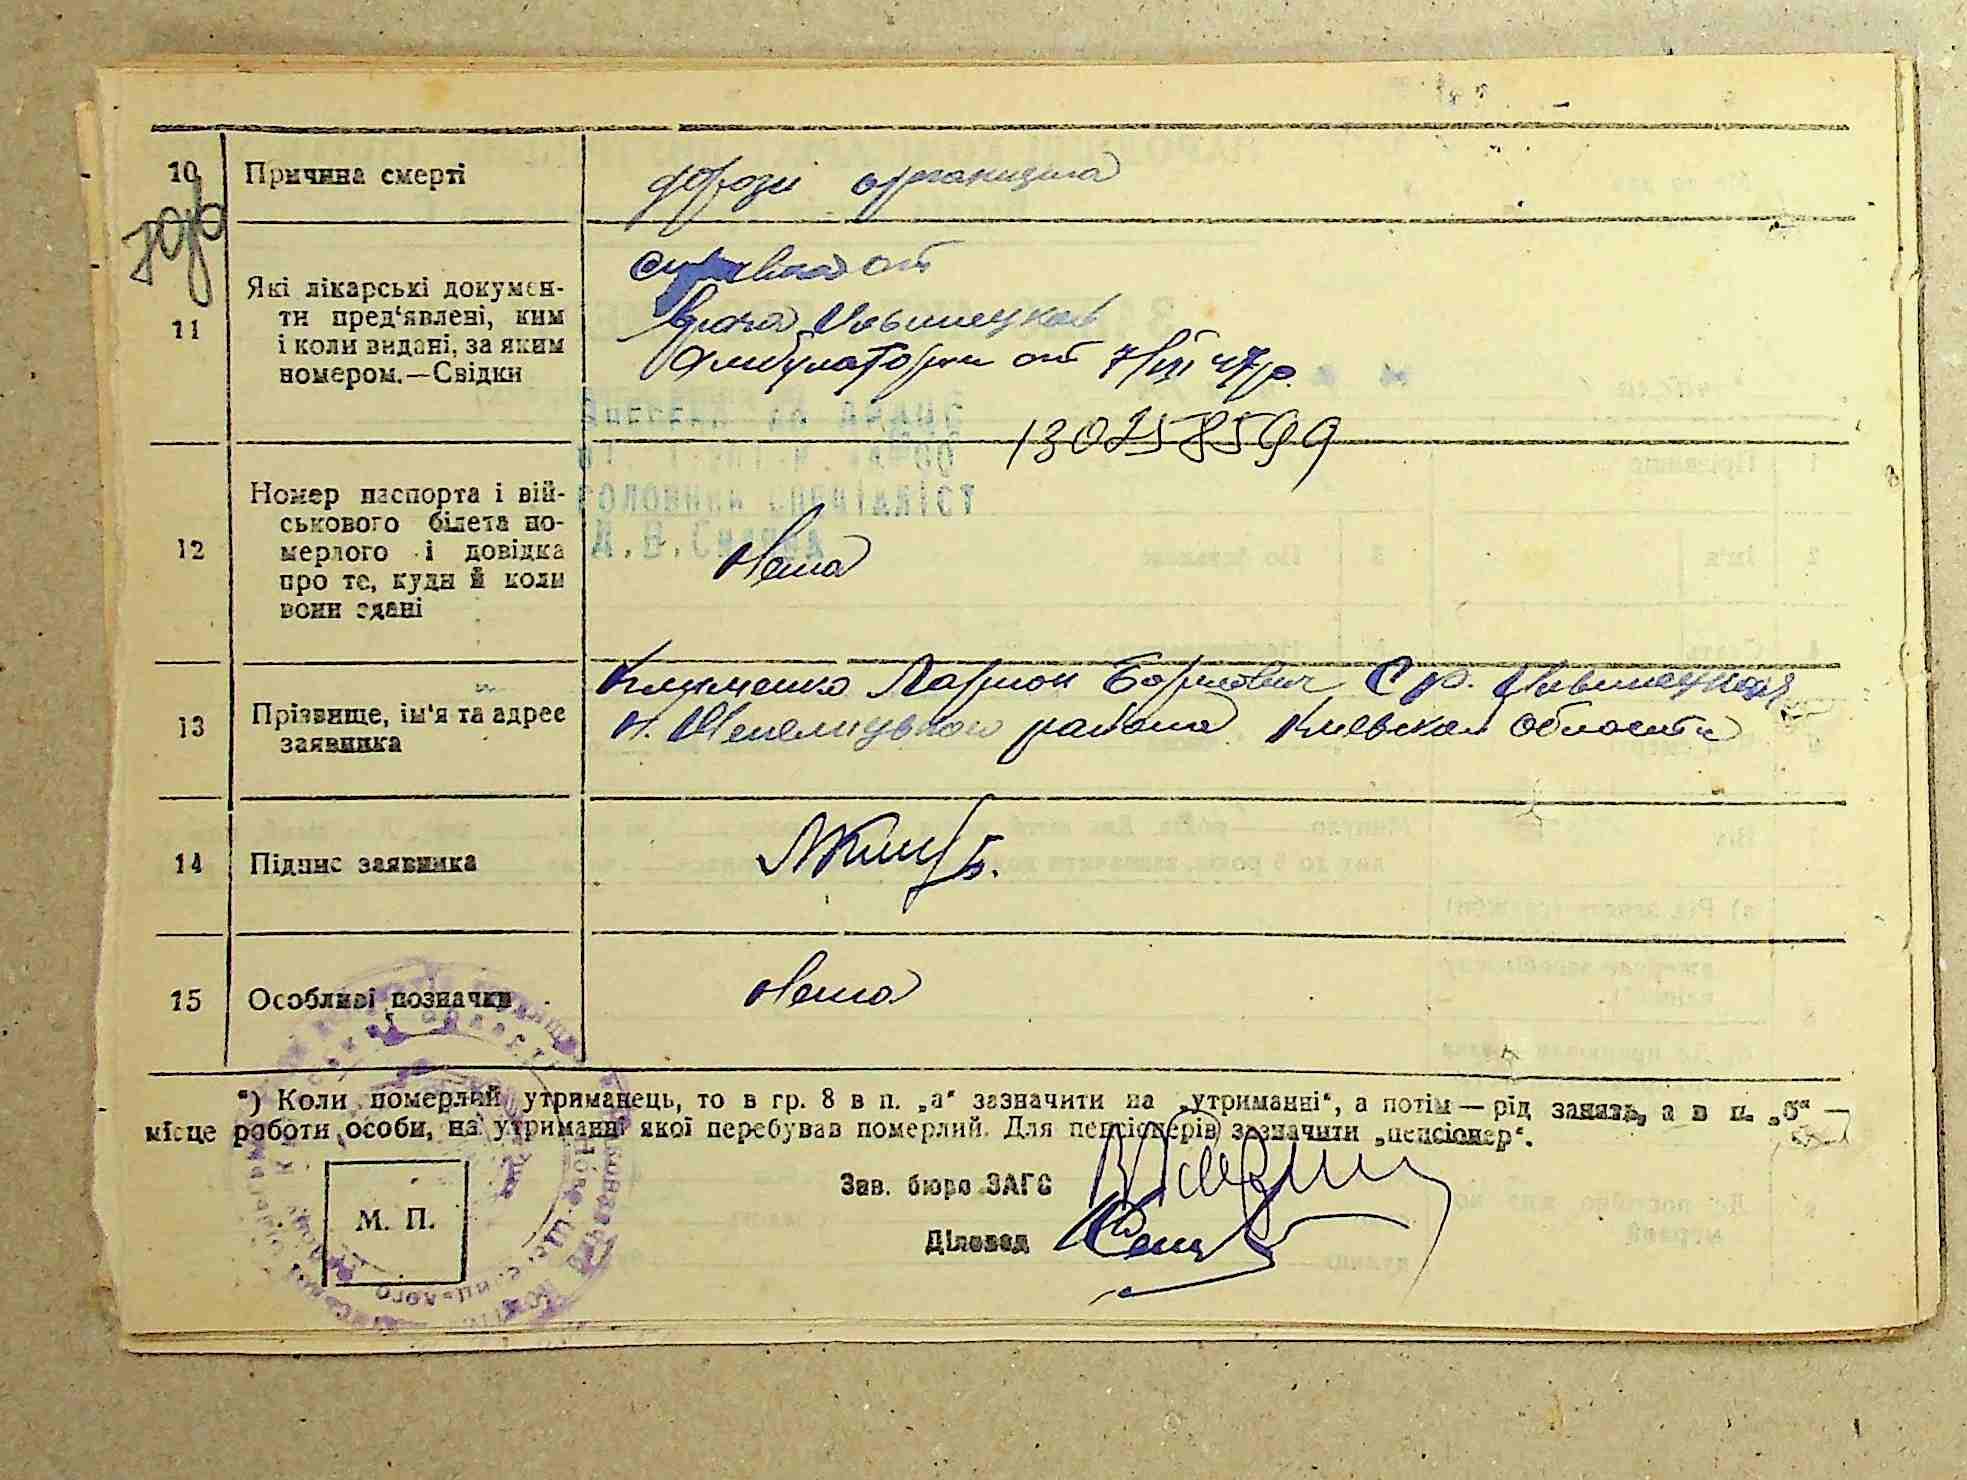 10 Причина смерті
организма
11 Які лікарські докумен-
ти пред'явлені, ким
і коли видані, за яким
номером.—Свідки
справка от
врача Ильинецкой
Амбулатории от 7/VII 47р.
130258599
головний спеціаліст
12 Номер паспорта і вій-
ськового білета по-
мерлого і довідка
про те, куди й коли
вони здані
Нема
13 Прізвище, ім'я та адрес
заявника
Клименко Ларион Борисович С р. Ильинецкая
Н. Шепелицькой района Киевская области
14 Підпис заявника
15 Особливі позначки
Нема
*) Коли померлий утриманець, то в гр. 8 в п. „а“ зазначити на „утриманні“, а потім — рід занять, а в п. „б“ —
місце роботи особи, на утриманні якої перебував померлий. Для пенсіонерів зазначити „пенсіонер“.
Зав. бюро ЗАГС
М. П.
Діловод